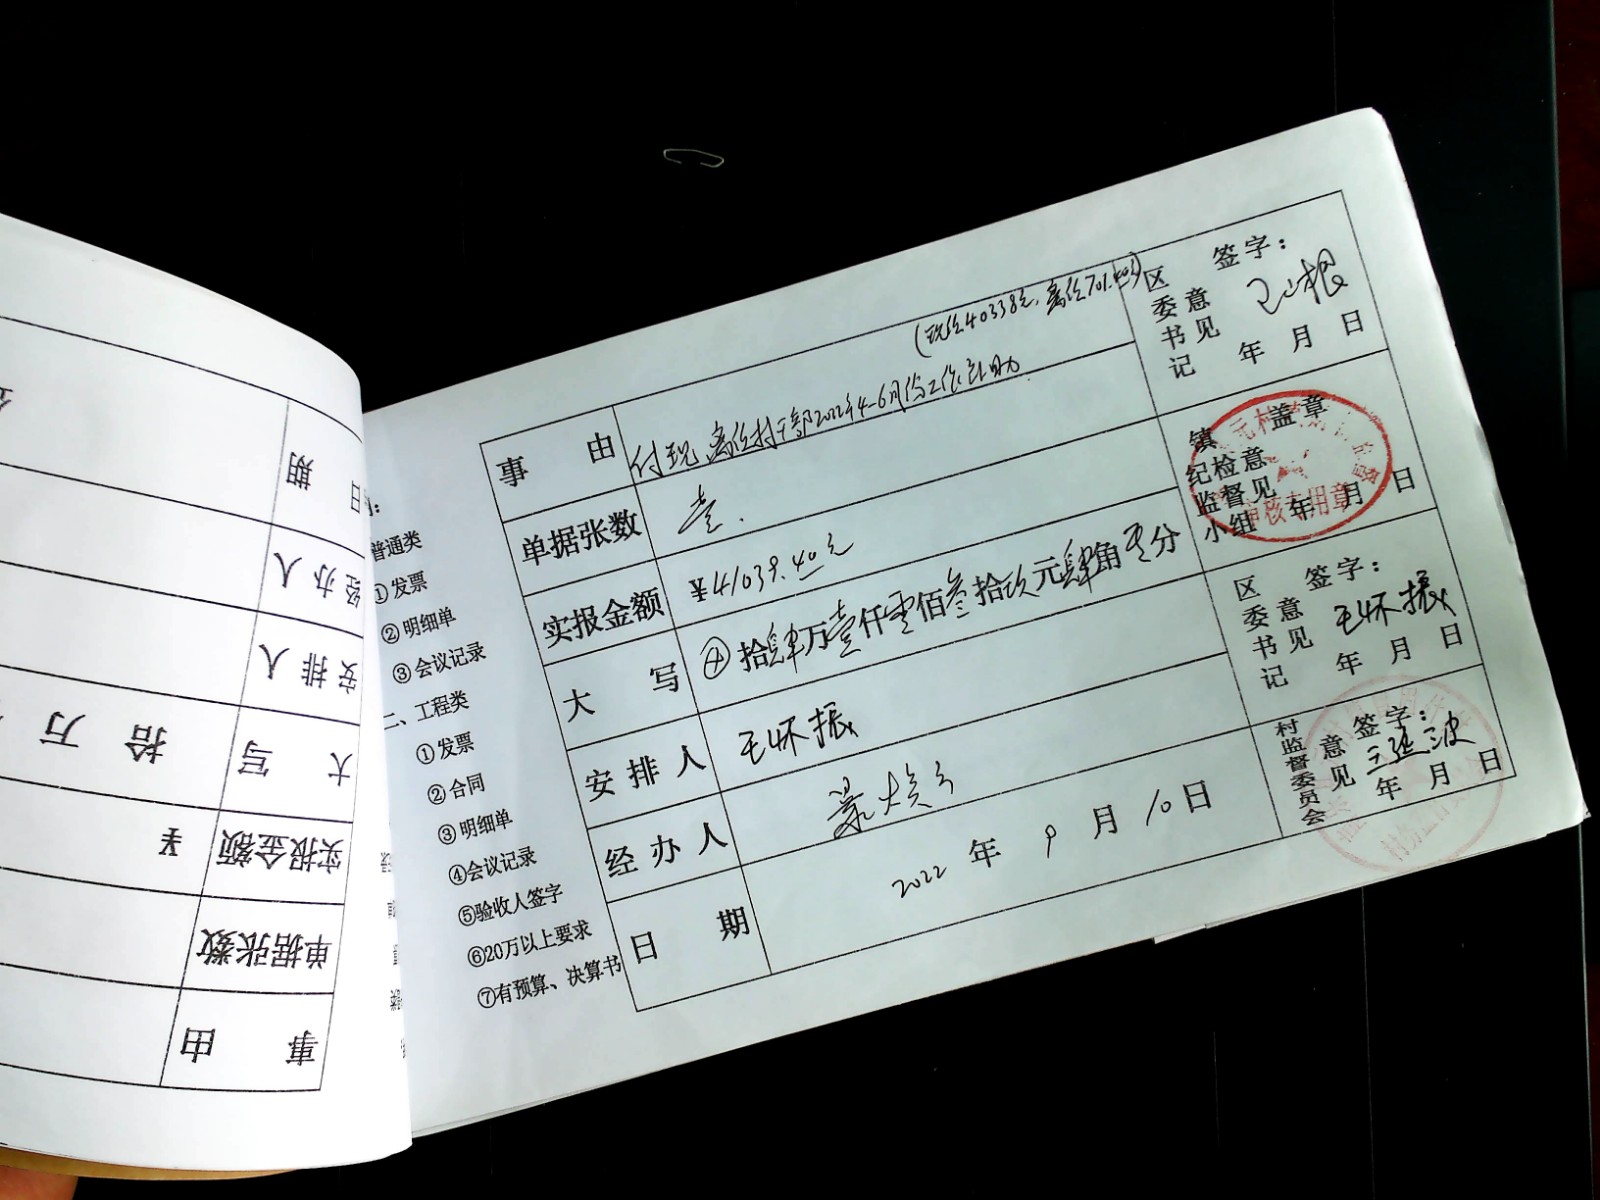 事由
付现离任村干部2022年4-6月份工作补助
(现任40338元,离任701.40元)
单据张数
壹.
实报金额
¥41039.40元
大写
⊗拾肆万壹仟零佰叁拾玖元肆角零分
安排人
毛怀振
经办人
日期
2022年9月10日
区委书记意见
签字:
年月日
镇纪检监督小组意见
盖章
审核专用章
年月日
区委书记意见
签字:
毛怀振
年月日
村监督委员会意见
签字:
年月日
普通类
①发票
②明细单
③会议记录
二、工程类
①发票
②合同
③明细单
④会议记录
⑤验收人签字
⑥20万以上要求
⑦有预算、决算书
事由
单据张数
实报金额
¥
大写
拾万
安排人
经办人
日期